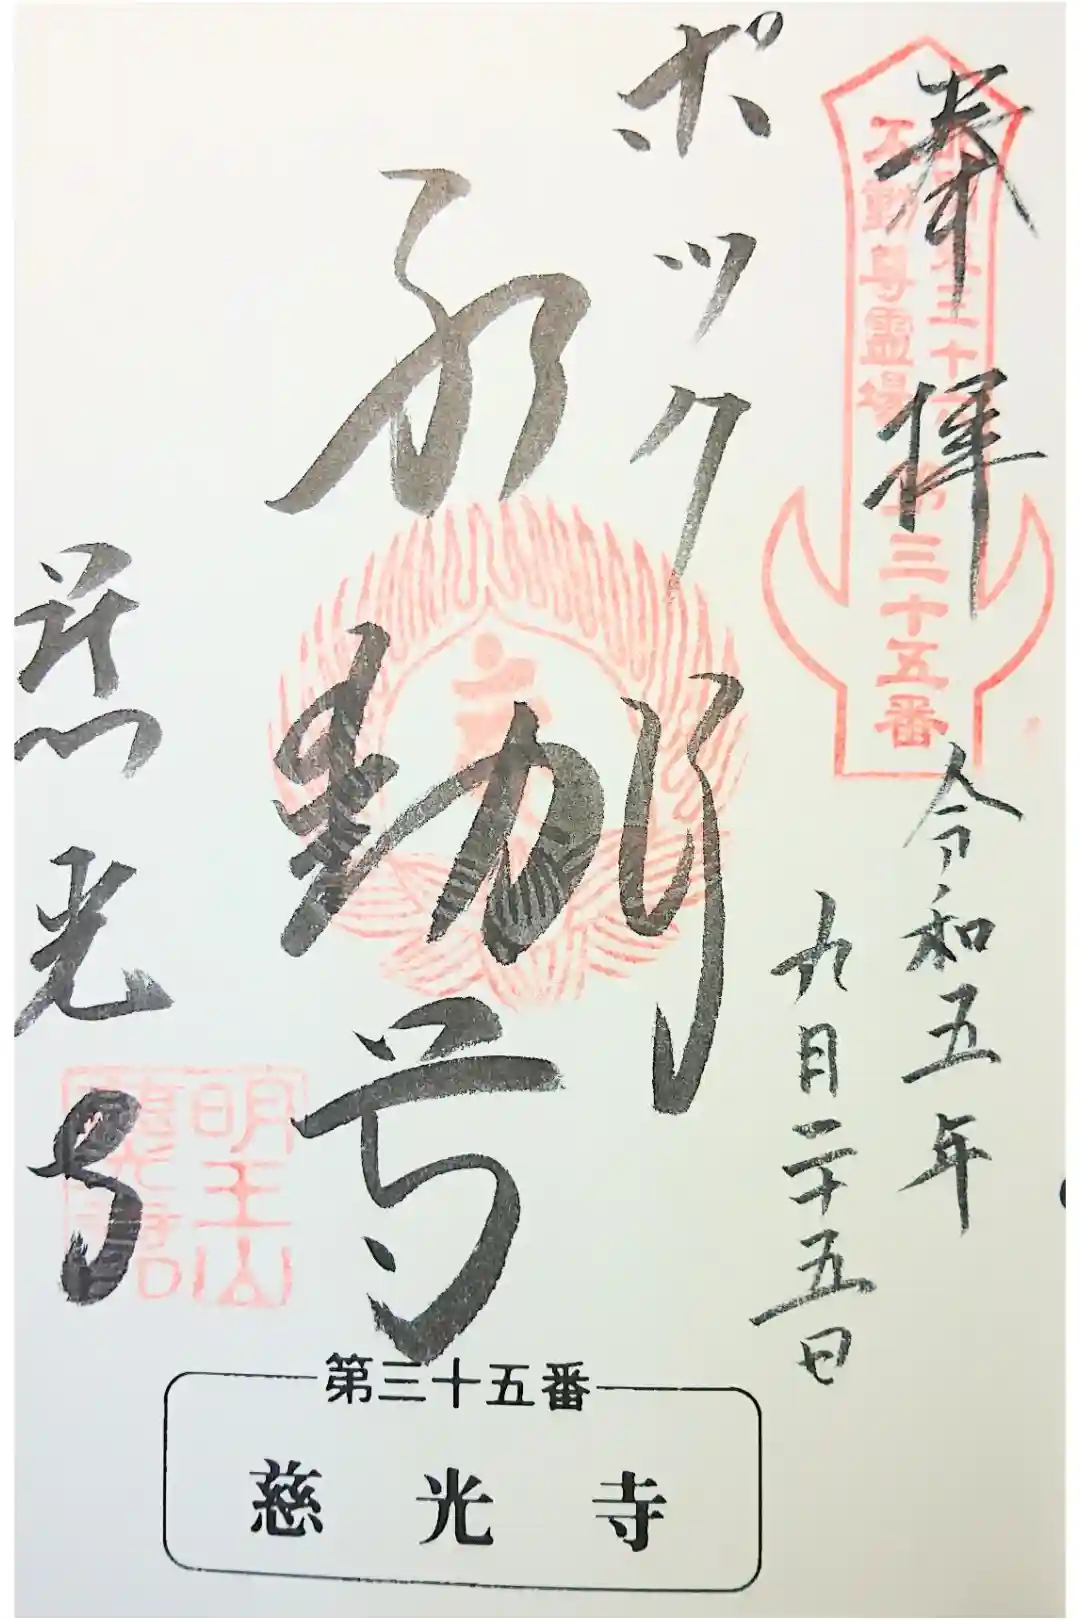 奉拝
令和五年
九月二十五日
ポックリ
不動尊
慈光寺
不動尊霊場
第三十五番
明王山
慈光寺
第三十五番
慈光寺